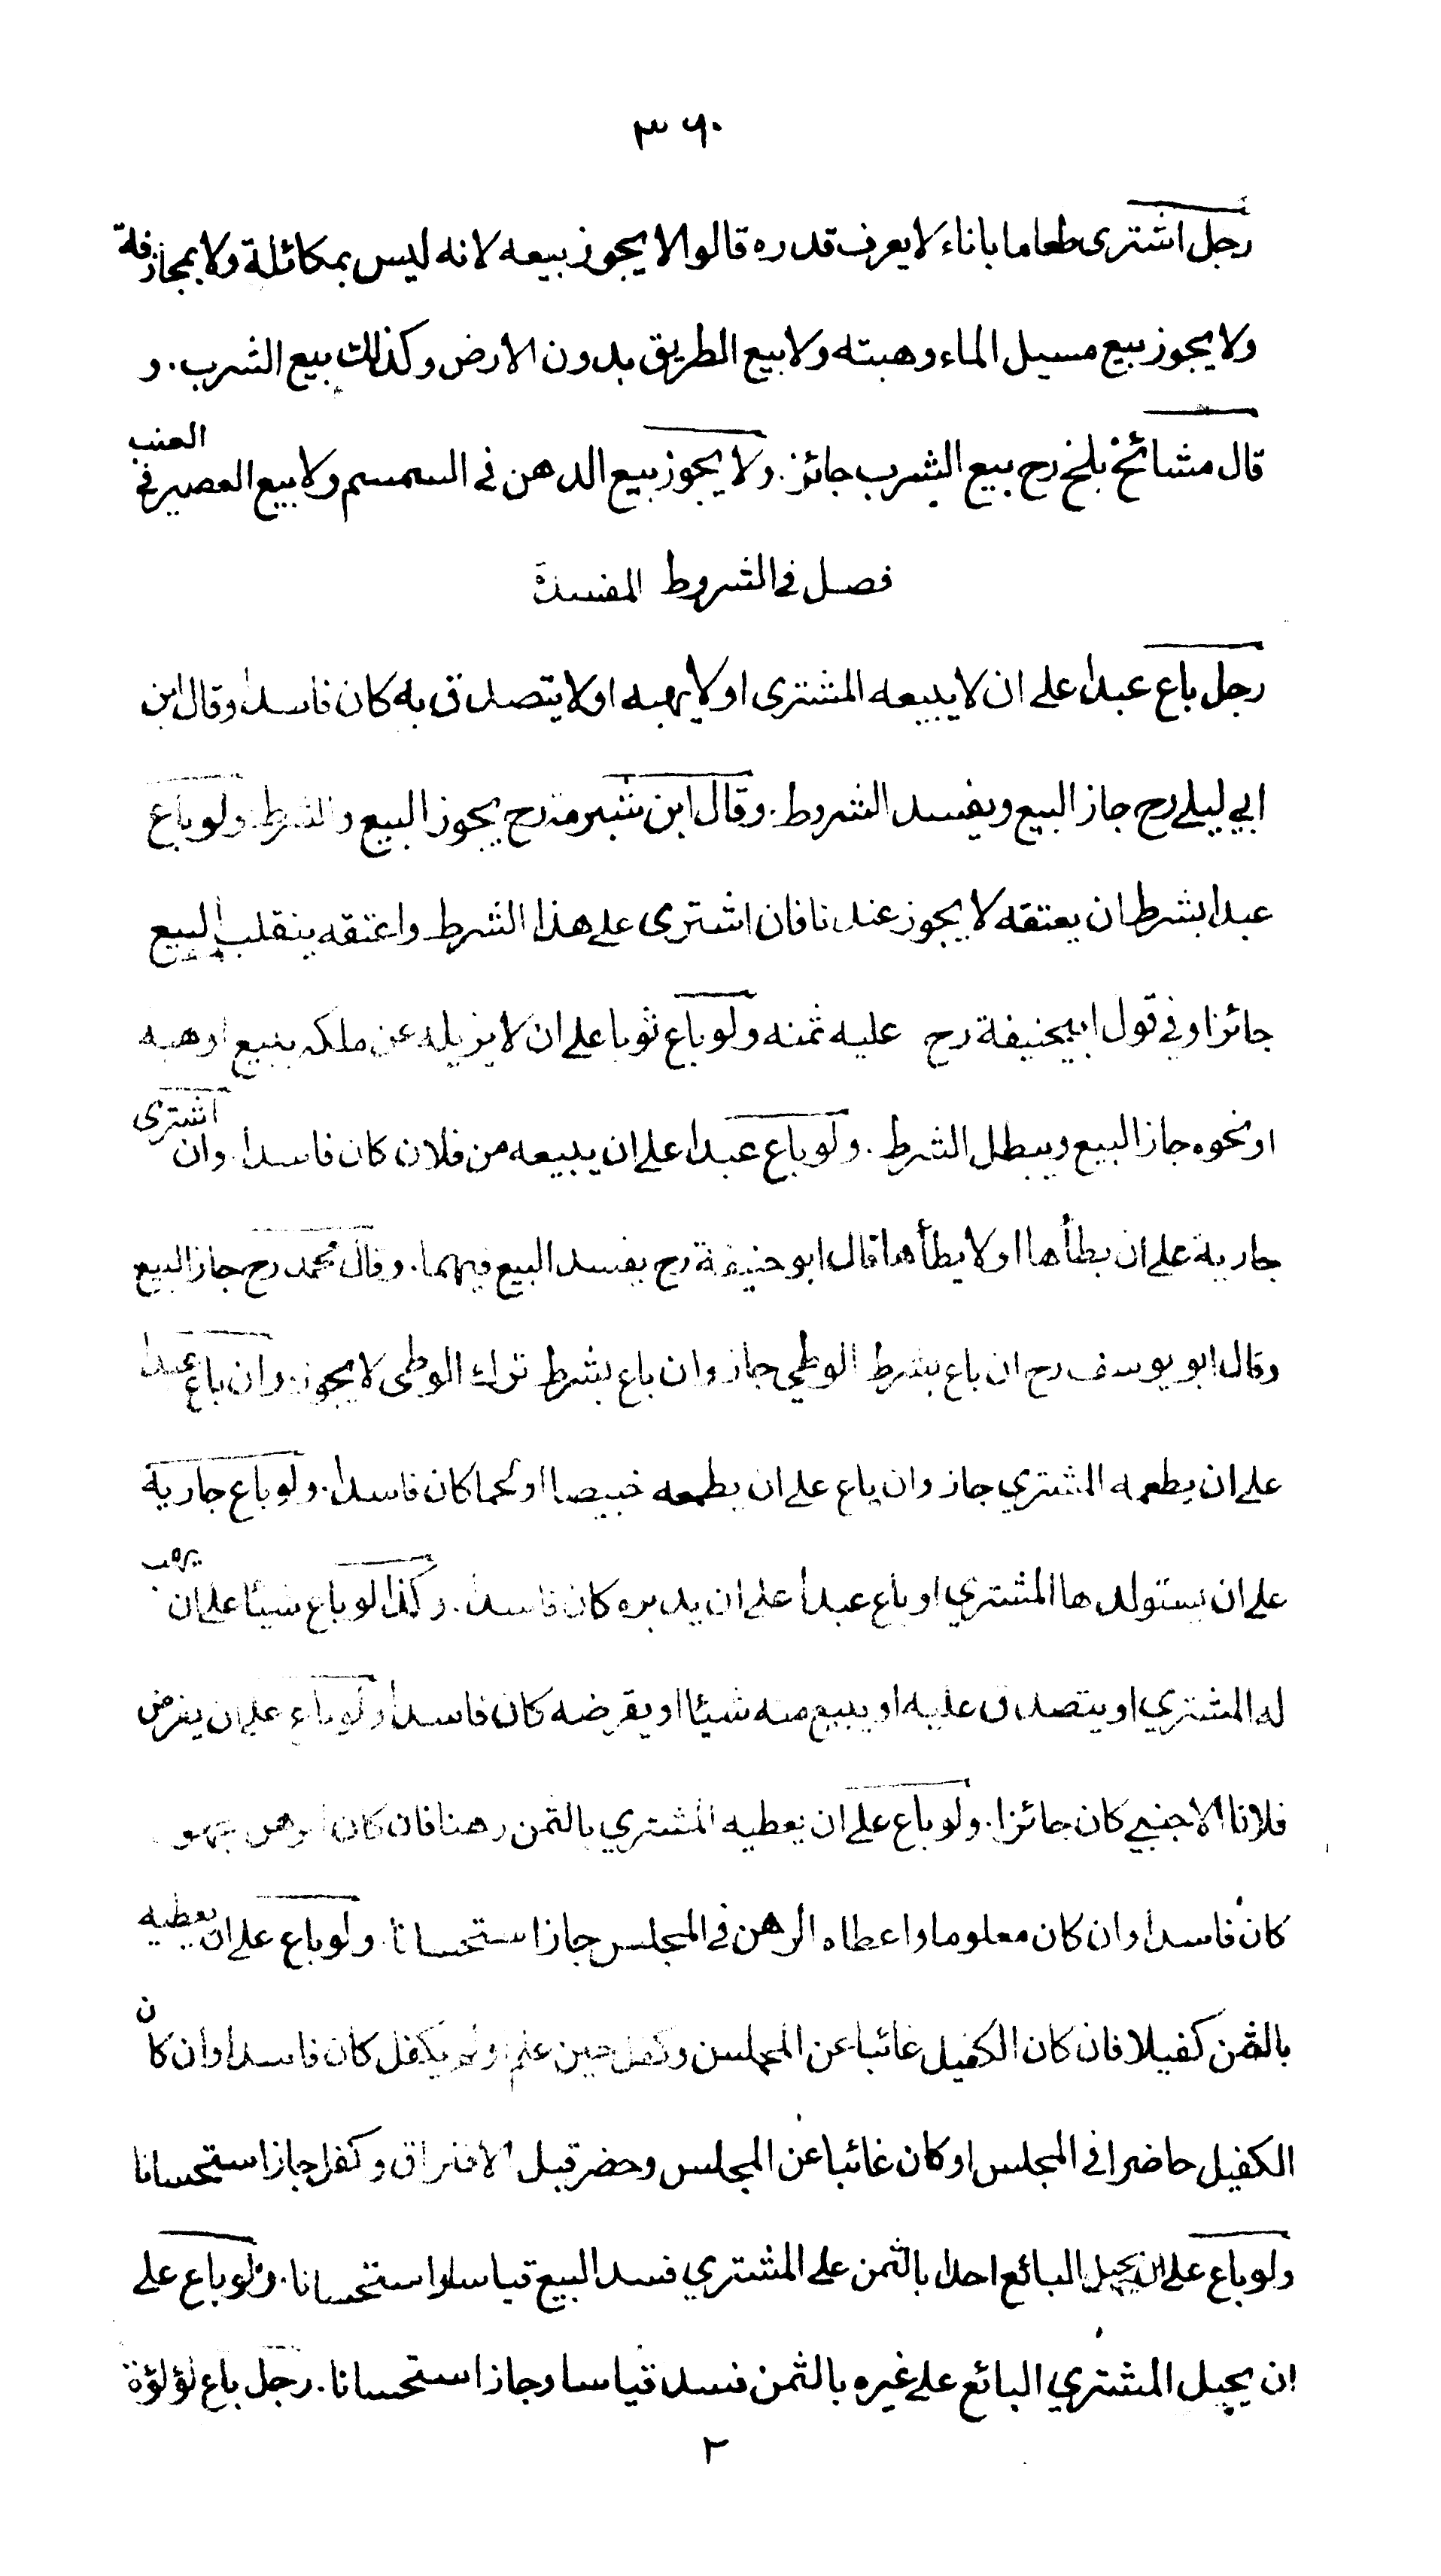 ٣٦٠
رجل اشترى طعاما باناء لا يعرف قدره قالوا لا يجوز بيعه لانه ليس بمكائلة ولا بمجازفة
ولا يجوز بيع مسيل الماء وهبته ولا بيع الطريق بدون الارض وكذلك بيع الشرب. و
قال مشائخ بلخ رح بيع الشرب جائز. ولا يجوز بيع الدهن في السمسم ولا بيع العصير في العنب
فصل في الشروط المفسدة
رجل باع عبدا على ان لا يبيعه المشترى او لا يهبه او لا يتصدق به كان فاسدا وقال ابن
ابي ليلى رح جاز البيع ويفسد الشروط. وقال ابن شبرمة رح يجوز البيع والشرط ولو باع
عبدا بشرط ان يعتقه لا يجوز عندنا فان اشترى على هذا الشرط واعتقه ينقلب البيع
جائزا وفي قول ابيحنيفة رح عليه ثمنه ولو باع ثوبا على ان لا يزيله عن ملكه ببيع او هبه
او نحوه جاز البيع ويبطل الشرط. ولو باع عبدا على ان يبيعه من فلان كان فاسدا. وان اشترى
جارية على ان يطأها او لا يطأها قال ابو حنيفة رح يفسد البيع فيهما. وقال محمد رح جاز البيع
وقال ابو يوسف رح ان باع بشرط الوطي جاز وان باع بشرط ترك الوطى لا يجوز. وان باع عبدا
على ان يطعمه المشتري جاز وان باع على ان يطعمه خبيصا او لحما كان فاسدا. ولو باع جارية
على ان يستولدها المشتري او باع عبدا على ان يدبره كان فاسدا. وكذا لو باع شيئا على ان يهب
له المشتري او يتصدق عليه او يبيع منه شيئا او يقرضه كان فاسدا ولو باع على ان يقرض
فلانا الاجنبي كان جائزا. ولو باع على ان يعطيه المشتري بالثمن رهنا فان كان الرهن مجهو
كان فاسدا وان كان معلوما واعطاه الرهن في المجلس جاز استحسانا. ولو باع على ان يعطيه
بالثمن كفيلا فان كان الكفيل غائبا عن المجلس وكفل حين علم او لم يكفل كان فاسدا وان كان
الكفيل حاضرا في المجلس او كان غائبا عن المجلس وحضر قبل الافتراق وكفل جاز استحسانا
ولو باع على ان يحيل البائع احدا بالثمن على المشتري فسد البيع قياسا واستحسانا. ولو باع على
ان يحيل المشتري البائع على غيره بالثمن فسد قياسا وجاز استحسانا. رجل باع لؤلؤة
٢